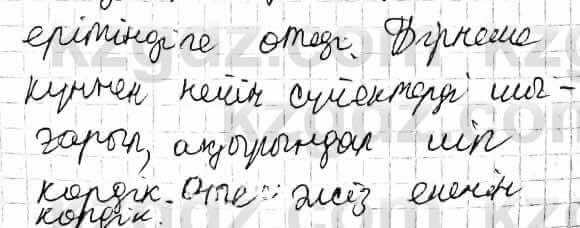 ерітіндіге өтеді. Бірнеше
күннен кейін сүйектерді шы-
ғарып, ақырындап иіп
көрдік. Өте әлсіз екенін
көрдік.